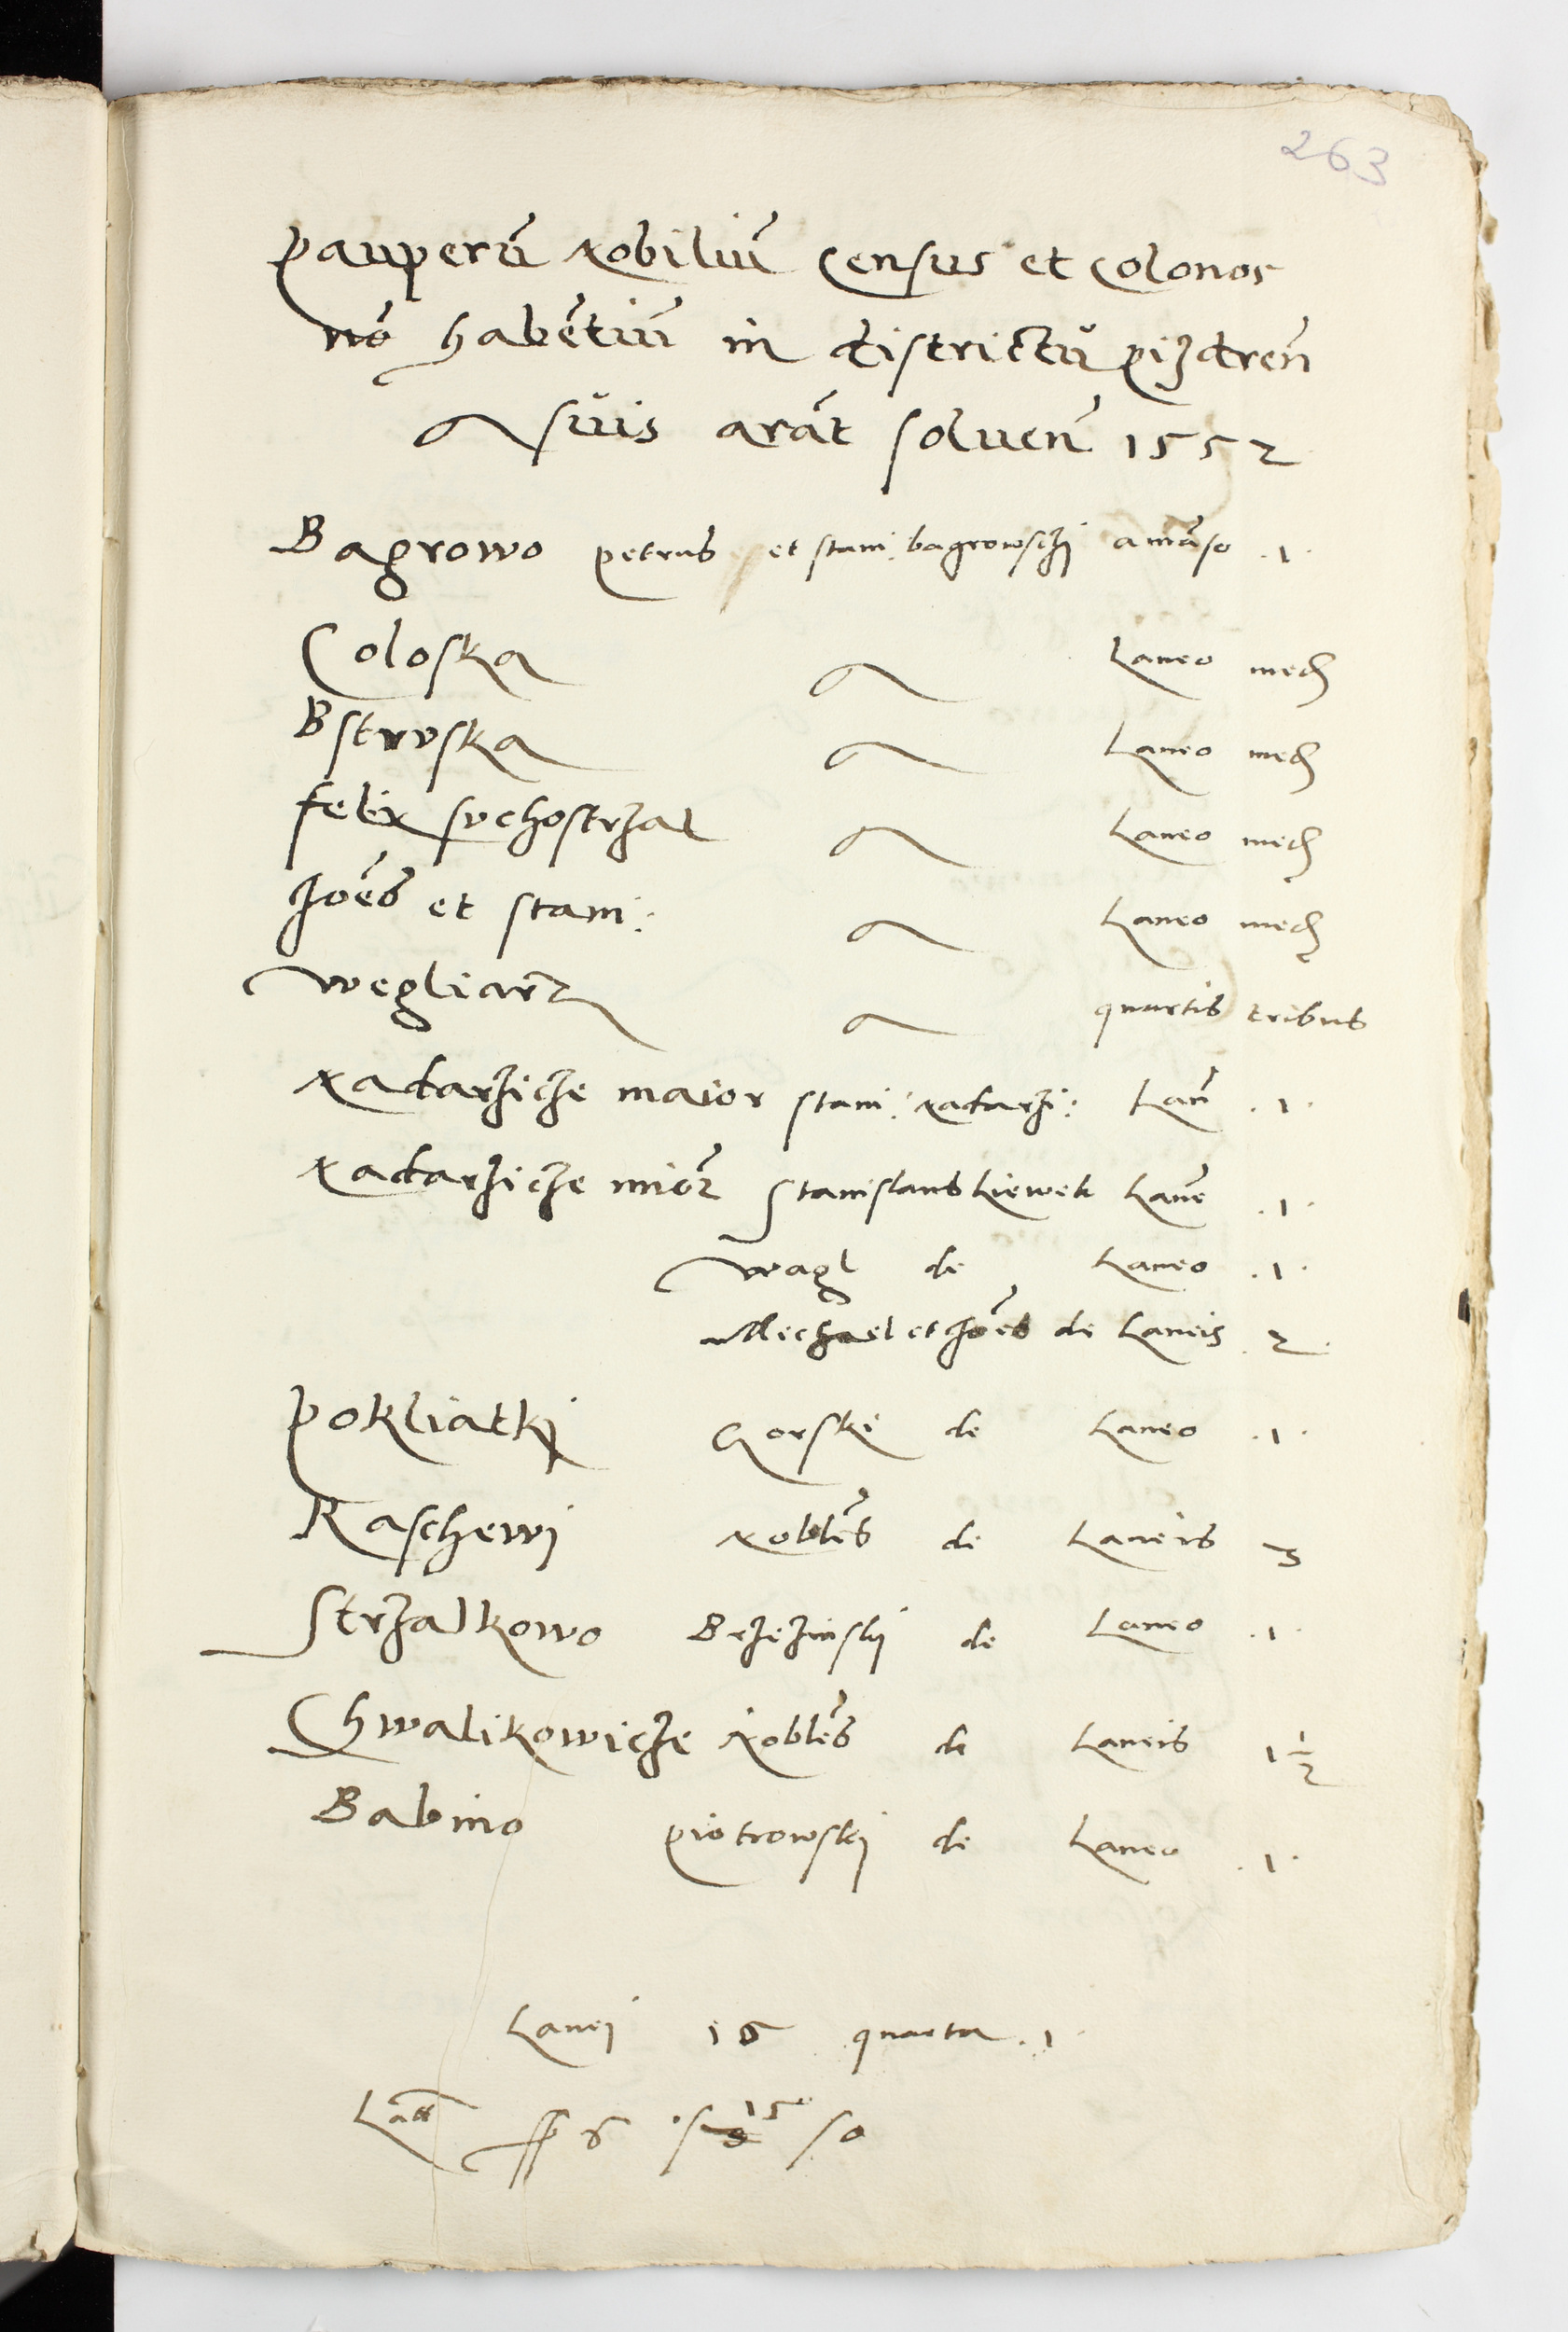 263
pauperū Nobiliū Census et colonos
nō habētiū in districtu pizdren̄
suis arāt soluen̄ 1552
Bagrowo petrus et stani: bagrowsczi a māso .1.
Coloska Laneo med
Bstrvska Laneo med
felix svchostrzal Laneo med
Joēs et stani: Laneo med
wegliarz quartis tribus
Nadarzicze maior stani: Nadarzi: Lan̄ .1.
Nadarzicze mior Stanislaus Liewek Lane .1.
wagl de Laneo .1.
Mechael et Joēs de Laneis 2.
pokliatkj Gorski de Laneo .1.
Raschewj Nobles de Laneis 3
Strzalkowo Brzezinskj de Laneo .1.
Chwalikowicze Nobles de Laneis 1 1/2
Babino piotrowskj de Laneo .1.
Lanej 16 quarta .1.
6 15 0